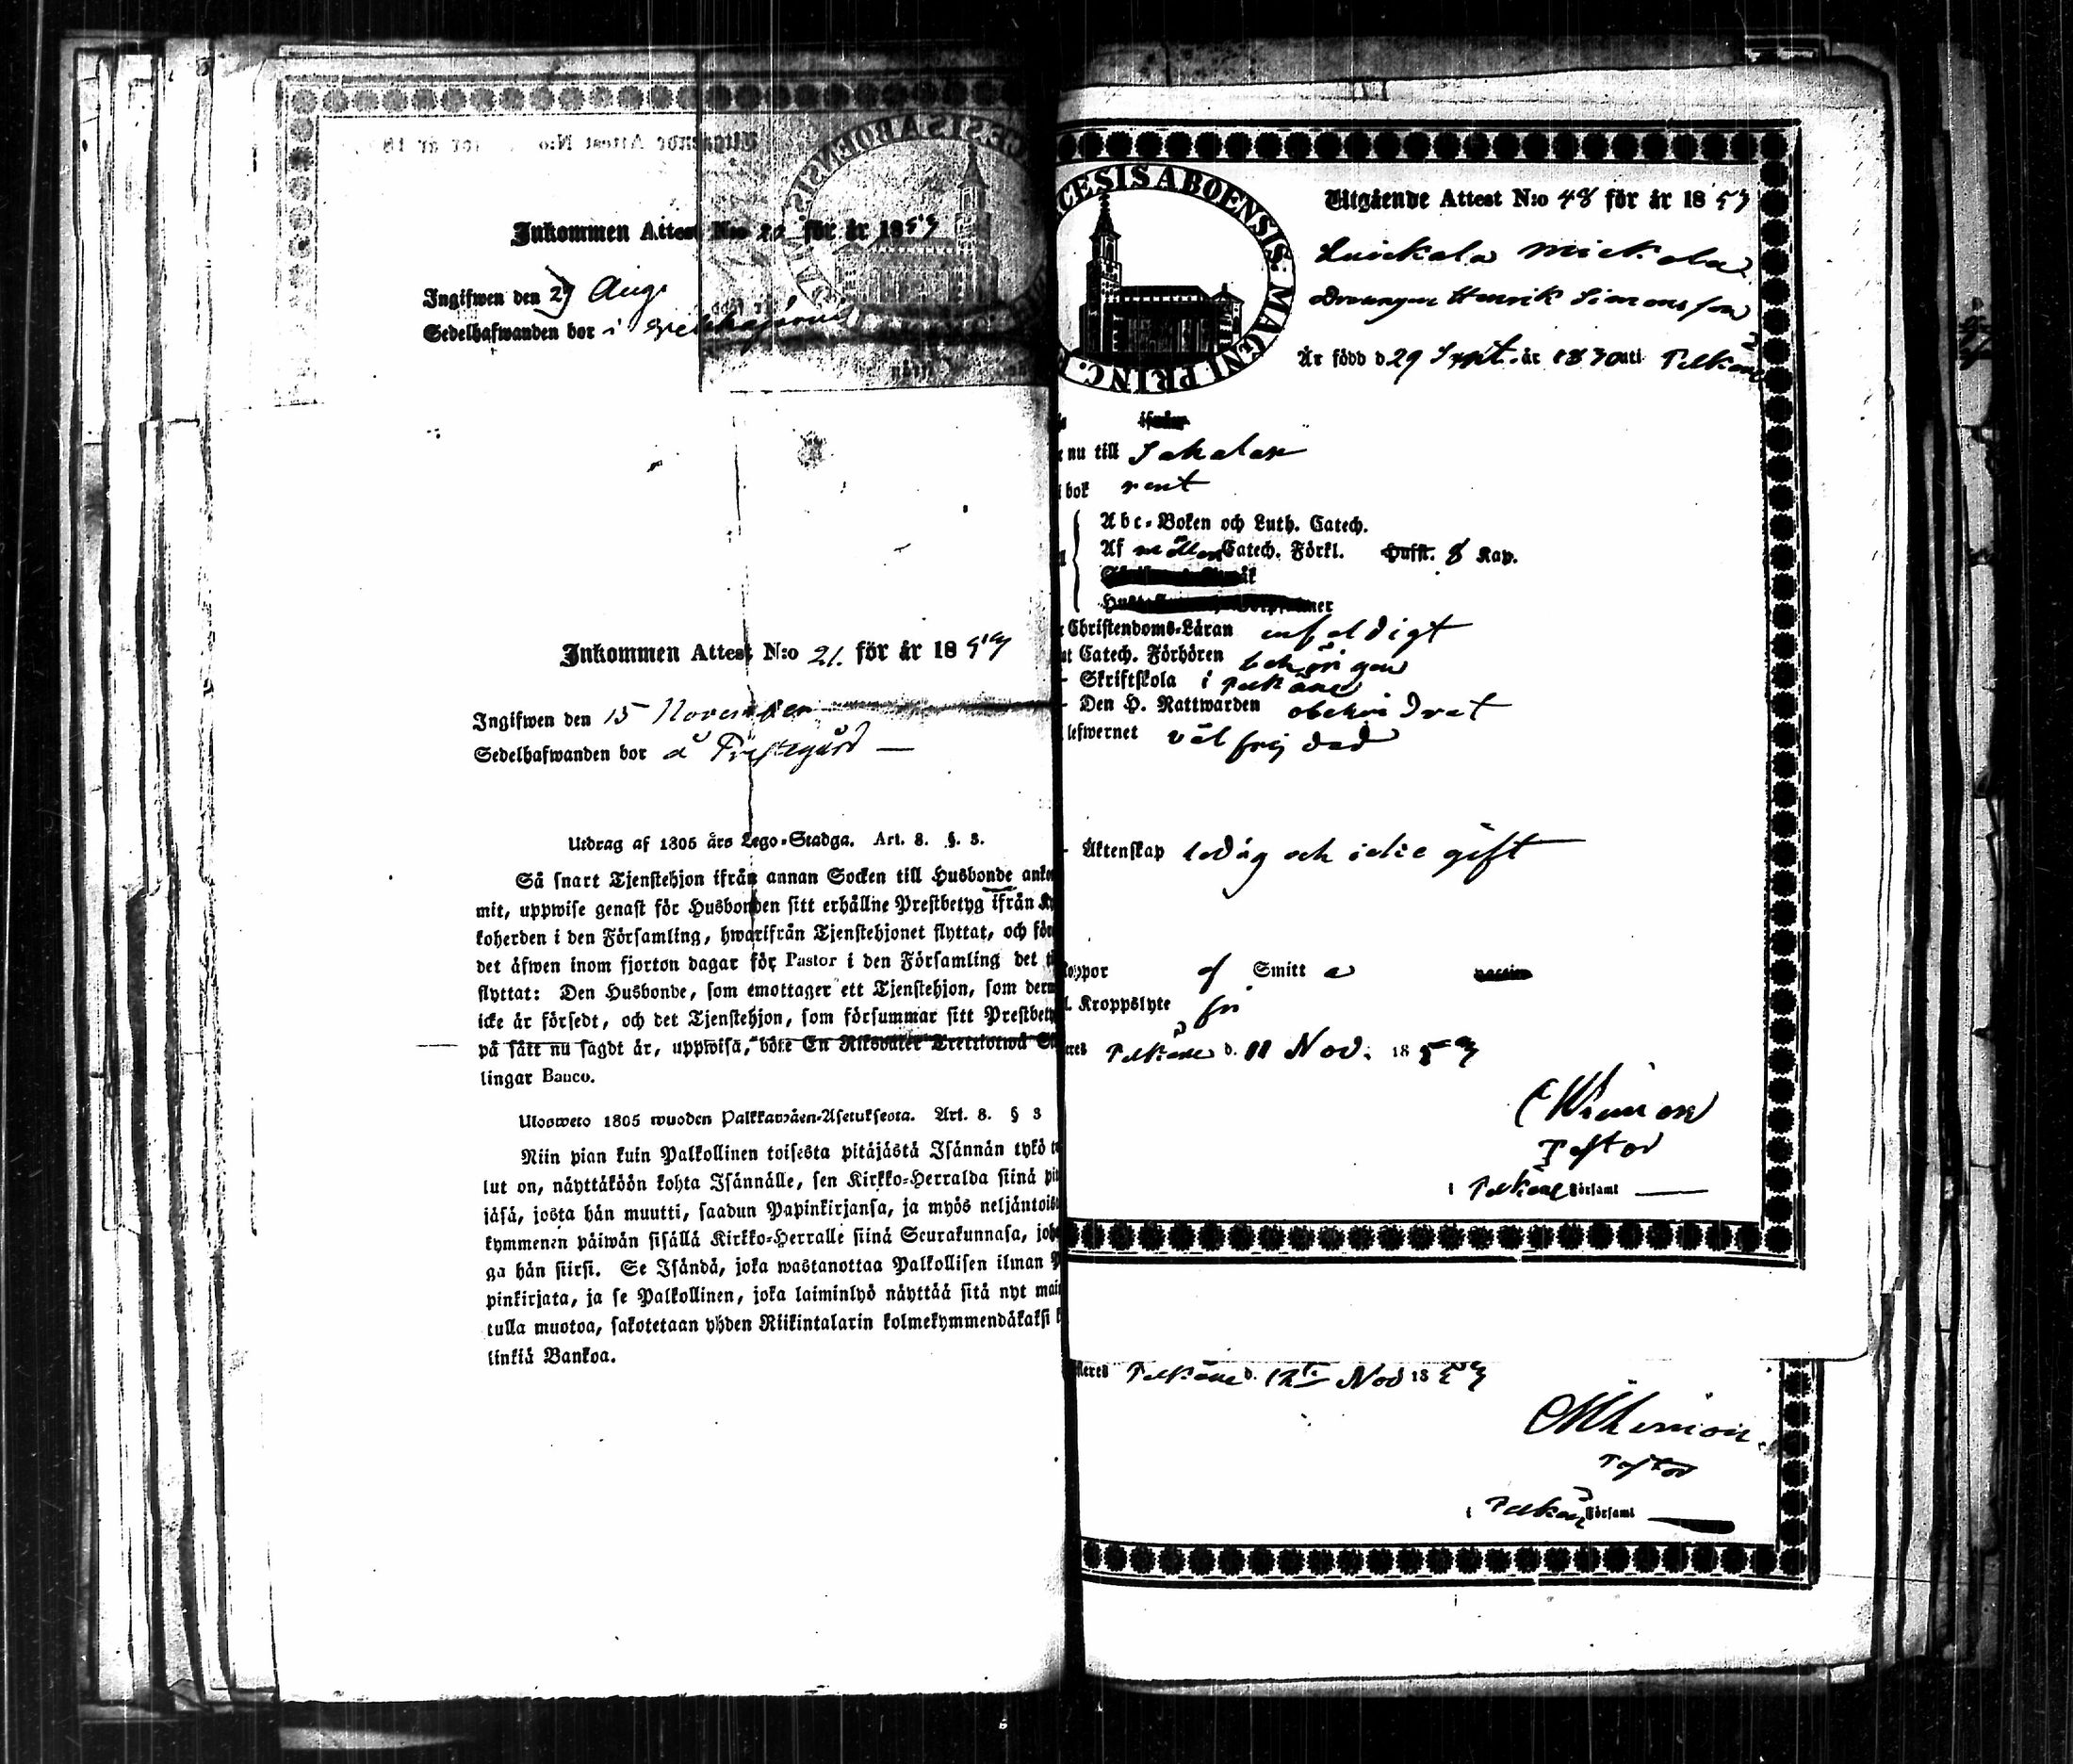 Inkommen Attest N:o för år 1853
Ingifwen den 29 Aug.
Sedelhafwanden bor i
Inkommen Attest N:o 21. för år 1853
Ingifwen den 15 November
Sedelhafwanden bor å Prestegård —
Utdrag af 1805 års Lego-Stadga. Art. 8. §. 3.
Så snart Tjenstehjon ifrån annan Socken till Husbonde anko
mit, uppwise genast för Husbonden sitt erhållne Prestbetyg ifrån Ky
koherden i den Församling, hwarifrån Tjenstehjonet flyttat, och för
det äfwen inom fjorton dagar för Pastor i den Församling det ti
flyttat: Den Husbonde, som emottager ett Tjenstehjon, som derm
icke är försedt, och det Tjenstehjon, som försummar sitt Prestbety
på sätt nu sagdt är, uppwisa, böte En Riksdaler Trettiotwå S
lingar Banco.
Ulosweto 1805 wuoden Palkkawäen-Asetuksesta. Art. 8. § 3
Niin pian kuin Palkollinen toisesta pitäjästä Isännän tykö t
lut on, näyttäköön kohta Isännälle, sen Kirkko-Herralda siinä pi
jäsä, josta hän muutti, saadun Papinkirjansa, ja myös neljäntoist
kymmenen päiwän sisällä Kirkko-Herralle siinä Seurakunnasa, joh
ga hän siirsi. Se Isändä, joka wastanottaa Palkollisen ilman P
pinkirjata, ja se Palkollinen, joka laiminlyö näyttää sitä nyt mai
tulla muotoa, sakotetaan yhden Riikintalarin kolmekymmendäkaksi k
linkiä Bankoa.
CESIS ABOENSIS. MAGNI PRINC.
Utgående Attest N:o 48 för år 1853
Luickala Mickola
Drängen Henrik Simonsson
Är född d 29 Sept. år 1830 uti Pelkäne
nu till Sahalax
i bok rent
Abc-Boken och Luth. Catech.
Af Catech. Förkl. Husft. 8 Kap.
Christendoms-Läran enfaldigt
Catech. Förhören behörigen
Skriftskola i Pelkäne
Den H. Nattwarden obehindrat
lefwernet väl frejdad
Äktenskap ledig och icke gift
Koppor af Smitt a
Kroppslyte fri
eres Pelkäne d. 11 Nov. 1853
Pastor
i Pelkäne Församl
steres Pelkäne d. 12te Nov 1853
Pastor
i Pelkäne Församl